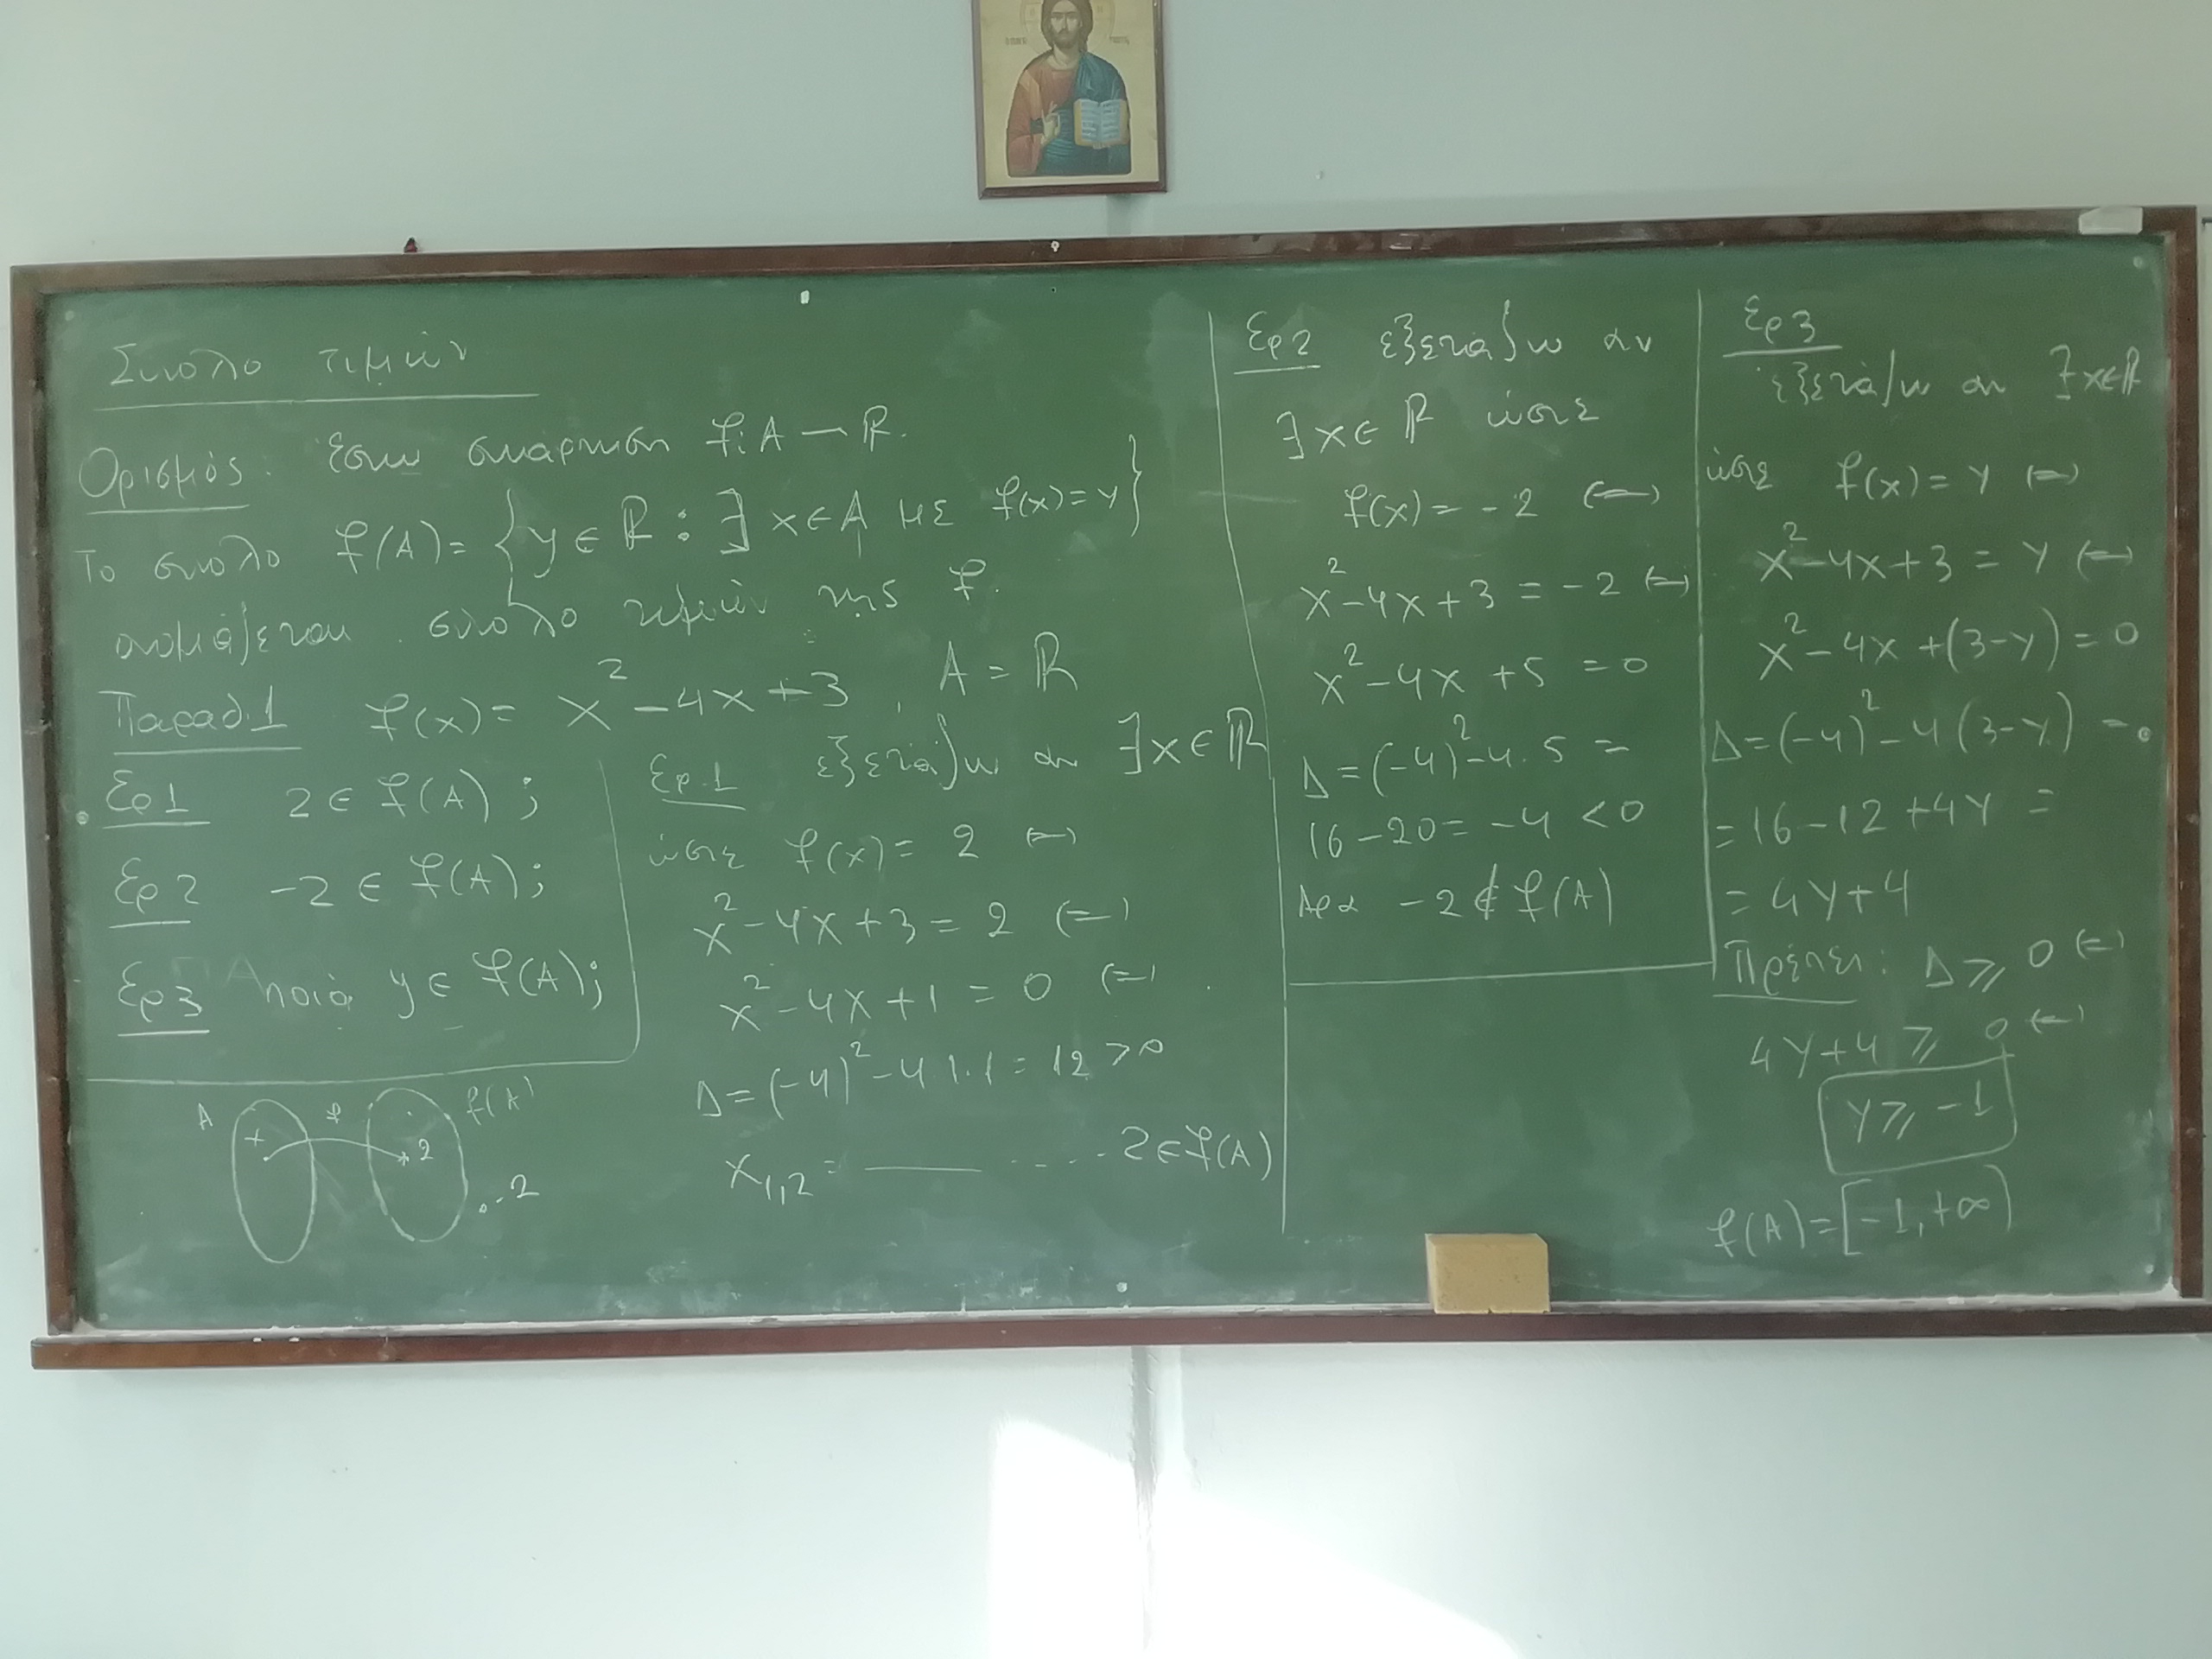 Σύνολο τιμών
Ορισμός: Έστω συνάρτηση f: A → ℝ.
Το σύνολο f(A) = { y ∈ ℝ : ∃ x ∈ A με f(x) = y }
ονομάζεται σύνολο τιμών της f.
Παραδ.1 f(x) = x² - 4x + 3, A = ℝ
Ερ1 2 ∈ f(A) ;
Ερ2 -2 ∈ f(A) ;
Ερ3 ποιά y ∈ f(A) ;
A f f(A)
2
-2
Ερ.1 εξετάζω αν ∃ x ∈ ℝ
ώστε f(x) = 2 ⇔
x² - 4x + 3 = 2 ⇔
x² - 4x + 1 = 0 ⇔
Δ = (-4)² - 4·1·1 = 12 > 0
x₁,₂ = ____ .... 2 ∈ f(A)
Ερ2 εξετάζω αν
∃ x ∈ ℝ ώστε
f(x) = -2 ⇔
x² - 4x + 3 = -2 ⇔
x² - 4x + 5 = 0
Δ = (-4)² - 4·5 =
16 - 20 = -4 < 0
Αρα -2 ∉ f(A)
Ερ3
εξετάζω αν ∃ x ∈ ℝ
ώστε f(x) = y ⇔
x² - 4x + 3 = y ⇔
x² - 4x + (3-y) = 0
Δ = (-4)² - 4(3-y) =
= 16 - 12 + 4y =
= 4y + 4
Πρέπει: Δ ≥ 0 ⇔
4y + 4 ≥ 0 ⇔
y ≥ -1
f(A) = [-1, +∞)